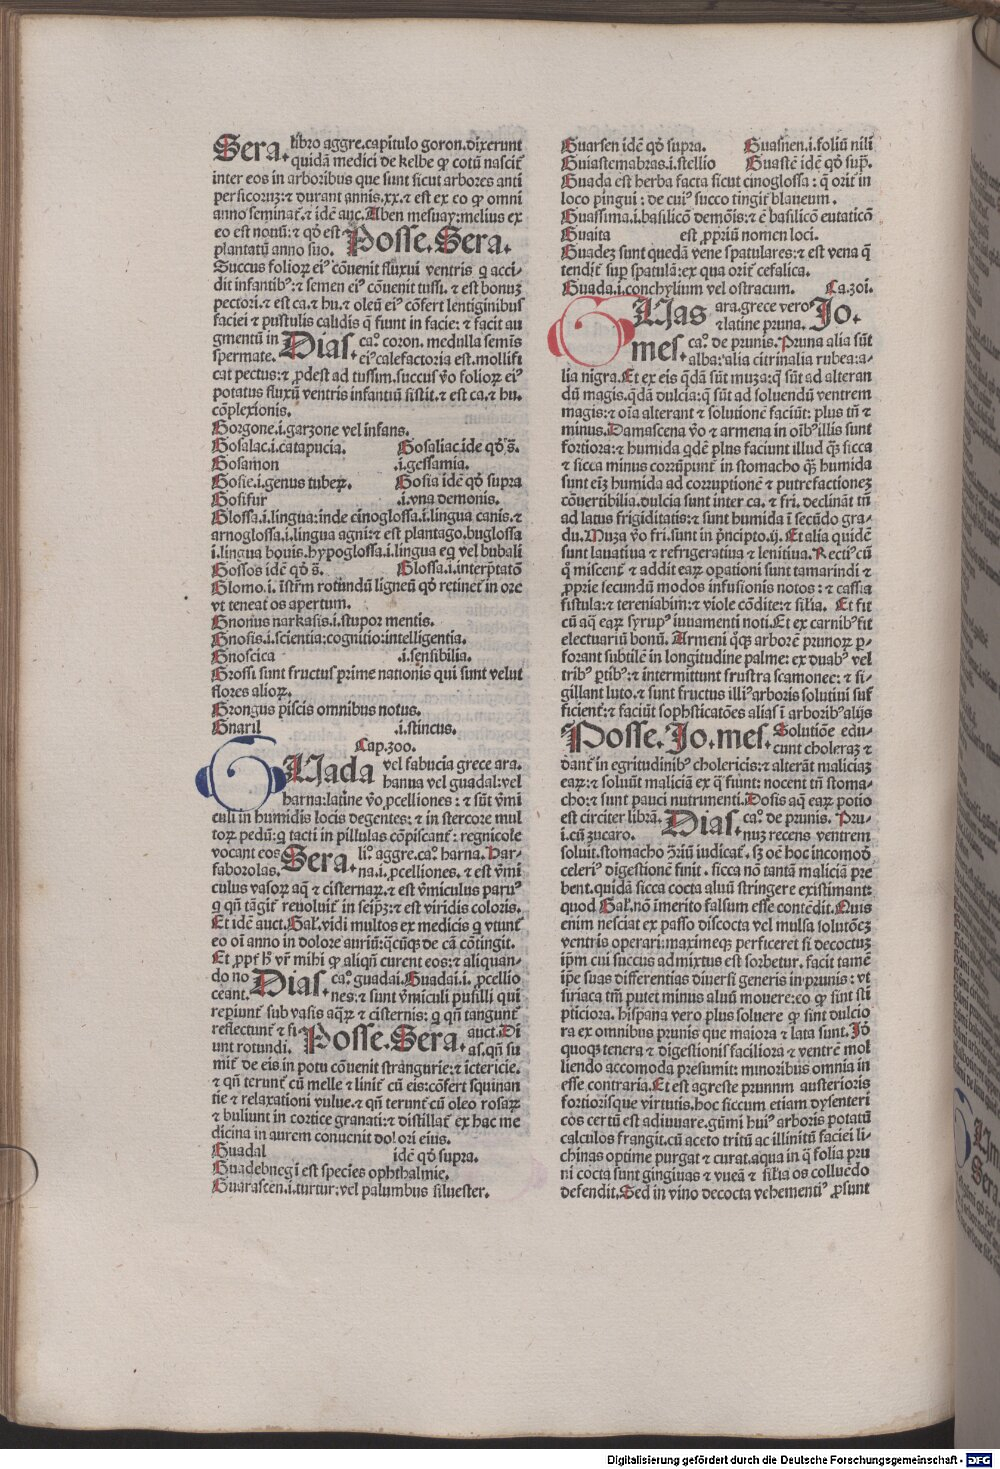 Sera. libro aggre.capitulo goron.dixerunt
quidã medici de kelbe ꝙ cotũ nascit̃
inter eos in arboribus que sunt sicut arbores anti
persicoruz:⁊ durant annis.xx.⁊ est ex eo ꝙ omni
anno seminat̃.⁊ idẽ auc.Aben mesuay:melius ex
eo est notũ:⁊ qđ est
plantatũ anno suo. Posse.Sera.
Succus folioꝝ ei⁹ cõuenit fluxui ventris q acci⸗
dit infantib⁹:⁊ semen ei⁹ cõuenit tussi.⁊ est bonuz
pectori.⁊ est ca.⁊ hu.⁊ oleũ ei⁹ cõfert lentiginibus
faciei ⁊ pustulis calidis q̃ fiunt in facie:⁊ facit au
gmentũ in Dias. ca°. coron.medulla semis
spermate. ei⁹ calefactoria est.mollifi
cat pectus:⁊ ꝓdest ad tussim.succus ṽo folioꝝ ei⁹
potatus fluxũ ventris infantiũ sistit.⁊ est ca.⁊ hu.
cõplexionis.
Gorgone.i.garzone vel infans.
Gosalac.i.catapucia. Gosaliac.ide qđ s̃.
Gosamon .i.gessamia.
Gosie.i.genus tubeꝝ. Gosia idẽ qđ supra
Gosifur .i.vna demonis.
Glossa.i.lingua:inde cinoglossa.i.lingua canis.⁊
arnoglossa.i.lingua agni:⁊ est plantago.buglossa
i.lingua bouis.hypoglossa.i.lingua eq̃ vel bubali
Gossos idẽ qđ s̃. Glossa.i.interp̃tatõ
Glomo.i.ĩstr̃m rotundũ ligneũ qđ retinet̃ in ore
vt teneat os apertum.
Gnonus narkasis.i.stupor mentis.
Gnosis.i.scientia:cognitio:intelligentia.
Gnoscica .i.sensibilia.
Grossi sunt fructus prime nationis qui sunt velut
flores alioꝝ.
Grongus piscis omnibus notus.
Gnaril .i.stincus.
Cap.300.
GUada vel fabucia grece ara.
hanna vel guadal:vel
harna:latine ṽo porcelliones:⁊ sũt ṽmi
culi in humidis locis degentes:⁊ in stercore mul
toꝝ pedũ:q̃ tacti in pillulas cõpiscant̃:regnicole
vocant eos Sera. li°.aggre.ca°.harna.Har⸗
faborolas. na.i.porcelliones.⁊ est ṽmi
culus vasoꝝ aq̃ ⁊ cisternaꝝ.⁊ est ṽmiculus paru⁹
q̃ qñ tãgit̃ reuoluit̃ in seip̃z:⁊ est viridis coloris.
Et idẽ auct.Gal̃.vidi multos ex medicis q̃ vtunt̃
eo oĩ anno in dolore auriũ:q̃cũqꝫ de cã cõtingit.
Et ꝓpt̃ h̃ vr̃ mihi ꝙ aliqñ curent eos:⁊ aliquan⸗
do no Dias. ca°. guadai.Guadai.i. porcellio
ceant. nes:⁊ sunt ṽmiculi pusilli qui
repiunt̃ sub vasis aq̃ꝝ ⁊ cisternis:q̃ qñ tangunt̃
reflectunt̃ ⁊ fi Posse.Sera. auct.Di
unt rotundi. as.qñ su
mit̃ de eis in potu cõuenit strangurie:⁊ ictericie.
⁊ qñ terunt̃ cũ melle ⁊ linit̃ cũ eis:cõfert squinan
tie ⁊ relaxationi vulue.⁊ qñ terunt̃ cũ oleo rosaꝝ
⁊ buliunt in cortice granati:⁊ distillat̃ ex hac me
dicina in aurem conuenit dolori eius.
Guadal idẽ qđ supra.
Guadebneg i est species ophthalmie.
Guarascen.i.turtur:vel palumbus siluester.
Guarsen idẽ qđ supra. Guasnen.i.foliũ nili
Guiastemabras.i.stellio Guastẽ idẽ qđ sup̃.
Guada est herba facta sicut cinoglossa:q̃ orit̃ in
loco pingui:de cui⁹ succo tingit̃ blaueum.
Guassima.i.basilicõ demõis:⁊ ẽ basilicõ eutaticõ
Guaita est ꝓpriũ nomen loci.
Guadez sunt quedã vene spatulares:⁊ est vena q̃
tendit̃ sup̃ spatulã:ex qua orit̃ cefalica.
Guada.i.conchylium vel ostracum. Ca.301.
GUas ara.grece vero
⁊ latine pruna. Jo.
mes. ca°. de prunis.Pruna alia sũt
alba:alia citrina:alia rubea:a⸗
lia nigra.Et ex eis q̃dã sũt muza:q̃ sũt ad alteran
dũ magis.q̃dã dulcia:q̃ sũt ad soluendũ ventrem
magis:⁊ oĩa alterant ⁊ solutionẽ faciũt:plus tñ ⁊
minus.Damascena ṽo ⁊ armena in oĩb⁹ illis sunt
fortiora:⁊ humida q̃dẽ plus faciunt illud q̃ꝫ sicca
⁊ sicca minus corrũpunt̃ in stomacho q̃ꝫ humida
sunt eiz̃ humida ad corruptionẽ ⁊ putrefactionez
cõuertibilia.dulcia sunt inter ca.⁊ fri.declinãt tñ
ad latus frigiditatis:⁊ sunt humida ĩ secũdo gra⸗
du.Muza ṽo fri.sunt in p̃ncipio.ij.Et alia quidẽ
sunt lauatiua ⁊ refrigeratiua ⁊ lenitiua.Recti⁹ cũ
q̃ miscent̃ ⁊ addit̃ eaꝝ oꝑationi sunt tamarindi ⁊
ꝓprie secundũ modos infusionis notos:⁊ cassia
fistula:⁊ tereniabin:⁊ viole cõdite:⁊ silia. Et fit
cũ aq̃ eaꝝ syrup⁹ iuuamenti noti.Et ex carnib⁹ fit
electuariũ bonũ. Armeni q̃qꝫ arborẽ prunoꝝ ꝑ⸗
forant subtilẽ in longitudine palme:ex duab⁹ vel
trib⁹ ꝑtib⁹:⁊ intermittunt frustra scamonee:⁊ si⸗
gillant luto.⁊ sunt fructus illi⁹ arboris solutiui suf
ficient̃:⁊ faciũt sophisticatões alias ĩ arborib⁹ alijs
Posse.Jo.mes. Solutiõe edu⸗
cunt choleraz ⁊
dant̃ in egritudinib⁹ cholericis:⁊ alterãt maliciaz
eaꝝ:⁊ soluũt maliciã ex q̃ fiunt:nocent tñ stoma⸗
cho:⁊ sunt pauci nutrimenti.Dosis aq̃ eaꝝ potio
est circiter librã. Dias. ca°. de prunis. Pru⸗
i.cũ zucaro. nuz recens ventrem
soluit.stomacho ꝯ̃riũ iudicat̃. sꝫ oẽ hoc incomođ
celeri⁹ digestionẽ finit. sicca nõ tantã maliciã pre
bent.quidã sicca cocta aluũ stringere existimant:
quod Gal̃.nõ imerito falsum esse contẽdit.Quis
enim nesciat ex passo discocta vel mulsa solutõez
ventris operari:maximeqꝫ perficeret si decoctuz
ip̃m cui succus admixtus est sorbetur. facit tamẽ
ip̃e suas differentias diuersi generis in prunis:vt
siriaca tm̃ putet minus aluũ mouere:eo ꝙ sint sti
pticiora. hispana vero plus soluere ꝙ sint dulcio
ra ex omnibus prunis que maiora ⁊ lata sunt.Jõ
quoqꝫ tenera ⁊ digestionis faciliora ⁊ ventrẽ mol
liendo accomoda presumit:minoribus omnia in
esse contraria.Et est agreste prunum austerioris
fortiorisque virtutis.hoc siccum etiam dysenteri
cos certũ est adiuuare.gũmi hui⁹ arboris potatũ
calculos frangit.cũ aceto tritũ ac illinitũ faciei li⸗
chinas optime purgat ⁊ curat.aqua in q̃ folia pru
ni cocta sunt gingiuas ⁊ vueã ⁊ filia os colluedo
defendit.Sed in vino decocta vehementi⁹ ꝓsunt
Digitalisierung gefördert durch die Deutsche Forschungsgemeinschaft - DFG